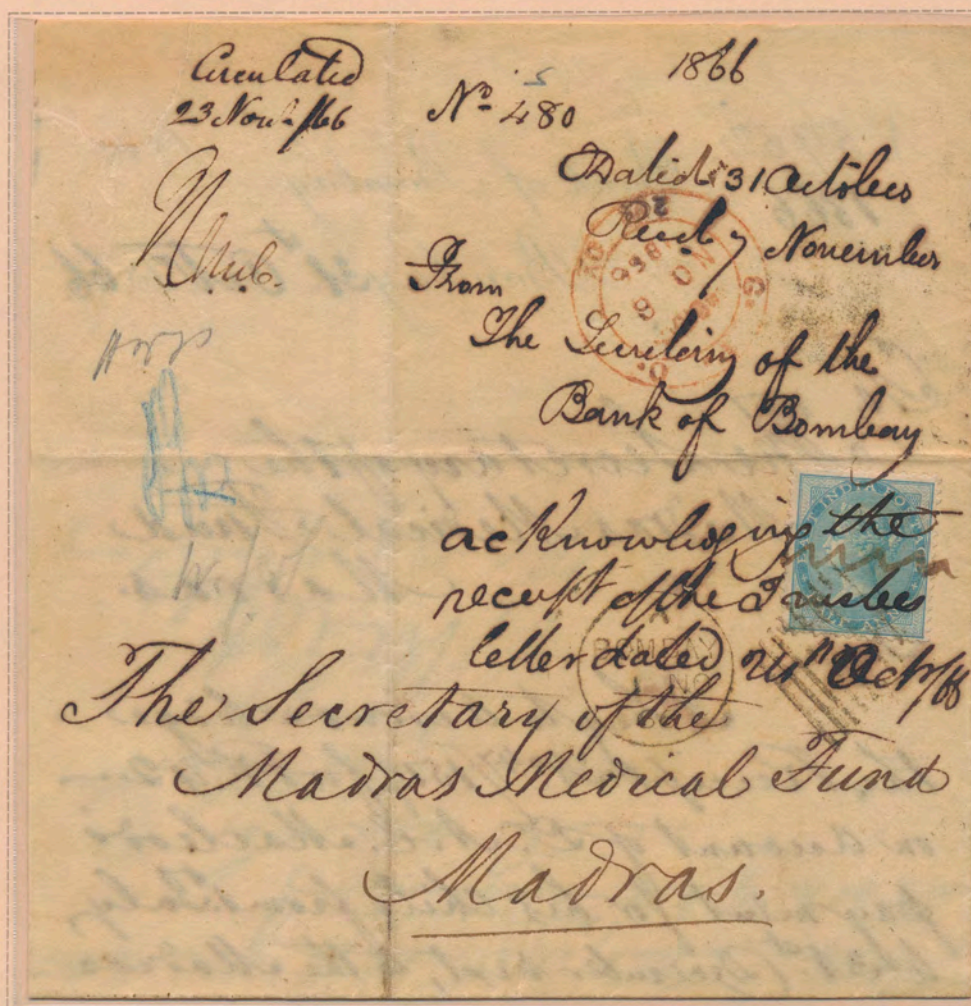 Circulated
23 Novr /66
1866
No 480
Dated 31 October
Recd 7 November
From
The Secretary of the
Bank of Bombay
acknowledging the
receipt of the Trustees
letter dated 24th Octr/66
The Secretary of the
Madras Medical Fund
Madras.
BOMBAY
NO
INDIA POSTAGE